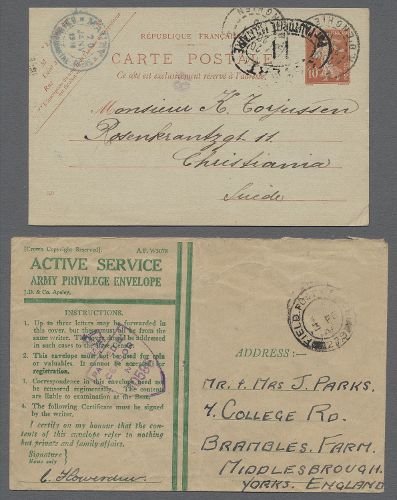 RÉPUBLIQUE FRANÇAISE
CARTE POSTALE
Ce côté est exclusivement réservé à l'adresse.
10
Monsieur K. Torjussen
Rosenkrantzgt. 11
Christiania
Suède
[Crown Copyright Reserved]
A.F. W3078
ACTIVE SERVICE
ARMY PRIVILEGE ENVELOPE
J.D. & Co. Apsley.
INSTRUCTIONS.
1. Up to three letters may be forwarded in
this cover, but these must all be from the
same writer. The cover should be addressed
in such cases to the Base Censor.
2. This envelope must not be used for coin
or valuables. It cannot be accepted for
registration.
3. Correspondence in this envelope need not
be censored regimentally. The contents
are liable to examination at the Base.
4. The following Certificate must be signed
by the writer.
I certify on my honour that the con-
tents of this envelope refer to nothing
but private and family affairs.
Signature
Name only
FIELD
ADDRESS:—
Mr. & Mrs J. Parks.
4. College Rd.
Brambles. Farm.
Middlesbrough.
Yorks. England